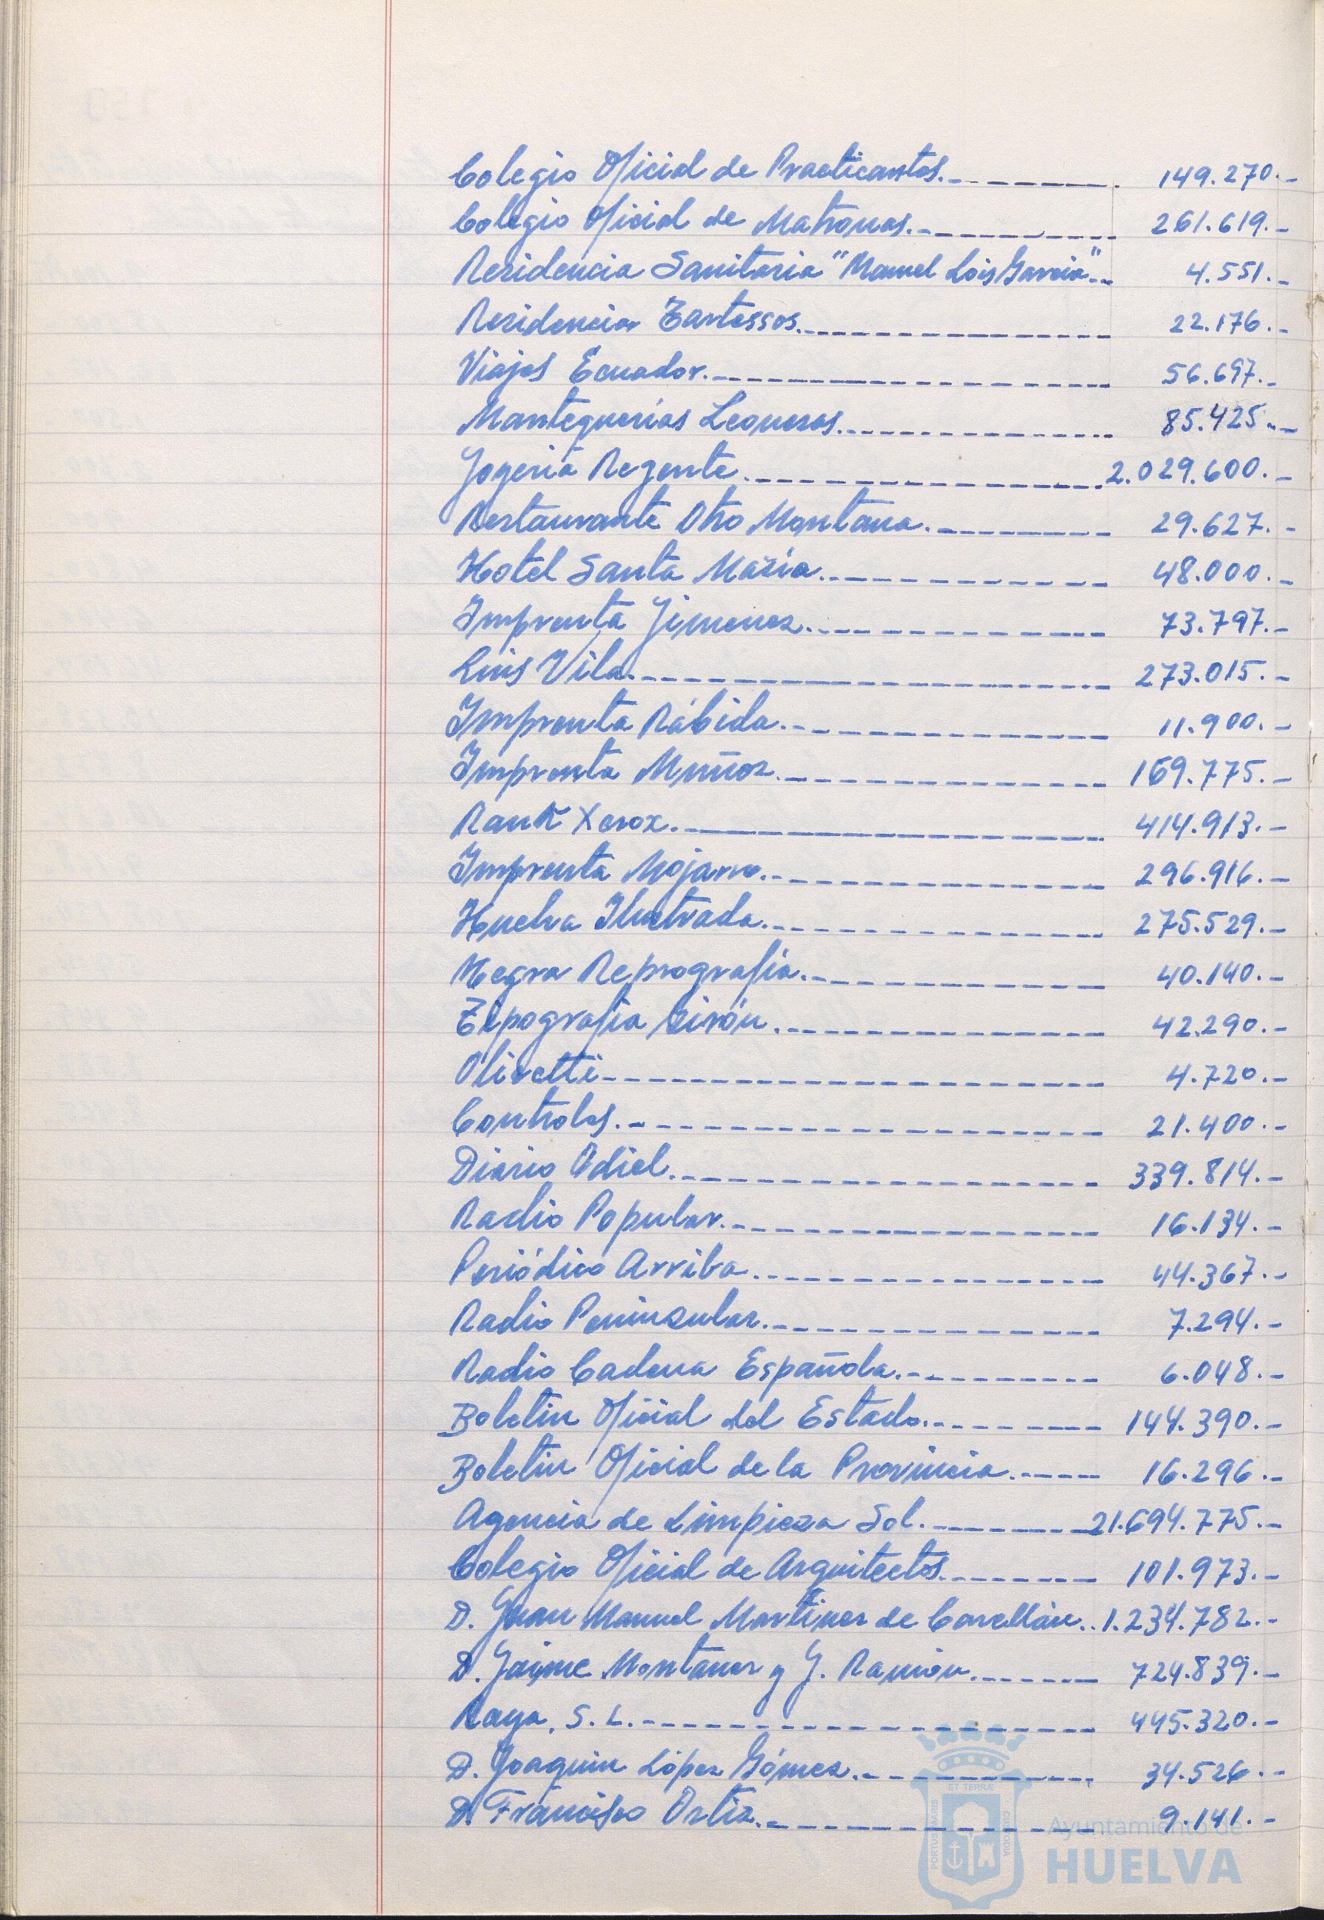 Colegio Oficial de Practicantes.- 149.270.-
Colegio Oficial de Matronas.- 261.619.-
Residencia Sanitaria "Manuel Lois García".- 4.551.-
Residencia Tartessos. 22.176.-
Viajes Ecuador.- 56.697.-
Mantequerías Leonesas. 85.425.-
Joyería Regente. 2.029.600.-
Restaurante Otto Montana. 29.627.-
Hotel Santa María. 48.000.-
Imprenta Jimenez. 73.797.-
Luis Vila. 273.015.-
Imprenta Rábida.- 11.900.-
Imprenta Muñoz. 169.775.-
Rank Xerox. 414.913.-
Imprenta Mojarro. 296.916.-
Huelva Ilustrada. 275.529.-
Megra Reprografía. 40.140.-
Tipografía Girón. 42.290.-
Olivetti 4.720.-
Controles. 21.400.-
Diario Odiel. 339.814.-
Radio Popular. 16.134.-
Periódico Arriba. 44.367.-
Radio Peninsular. 7.294.-
Radio Cadena Española. 6.048.-
Boletin Oficial del Estado. 144.390.-
Boletin Oficial de la Provincia. 16.296.-
Agencia de Limpieza Sol. 21.694.775.-
Colegio Oficial de Arquitectos. 101.973.-
D. Juan Manuel Martinez de Carellán.. 1.234.782.-
D. Jaime Montaner y G. Ramión. 724.839.-
Raya, S.L. 445.320.-
D. Joaquin López Gómez. 34.526.-
D. Francisco Ortiz. 9.141.-
ET TERRAE
PORTUS MARIS
CUSTODIA
Ayuntamiento de
HUELVA